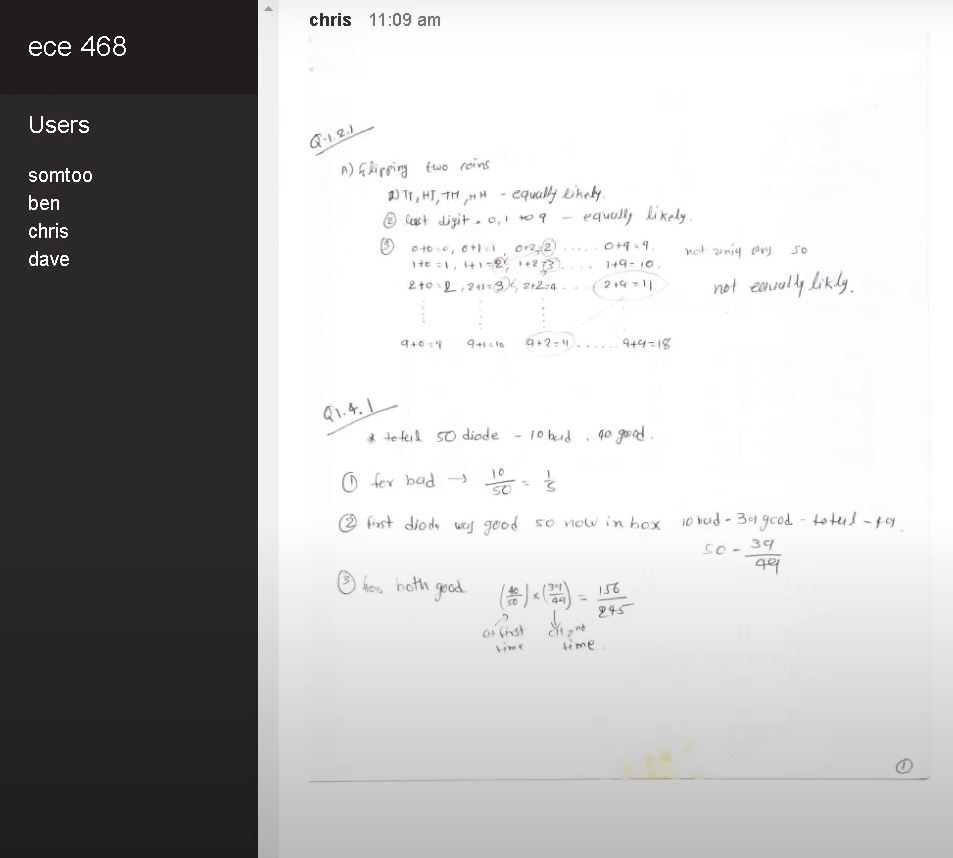 ece 468
Users
somtoo
ben
chris
dave
chris 11:09 am
Q-1.2.1
A) flipping two coins
1) TT, HT, TH, HH - equally likely.
② last digit = 0, 1 to 9 - equally likely.
③ 0+0=0, 0+1=1, 0+2=2 ...... 0+9=9. not so
1+0=1, 1+1=2, 1+2=3 .... 1+9=10.
2+0=2, 2+1=3, 2+2=4 .... 2+9=11 not equally likly.
9+0=9 9+1=10 9+2=11 ...... 9+9=18
Q1.4.1
* total 50 diode - 10 bad, 40 good.
① for bad → 10/50 = 1/5
② first diode was good so now in box 10 bad - 39 good - total - 49.
so - 39/49
③ for both good (40/50) × (39/49) = 156/245
at first time at 2nd time.
①